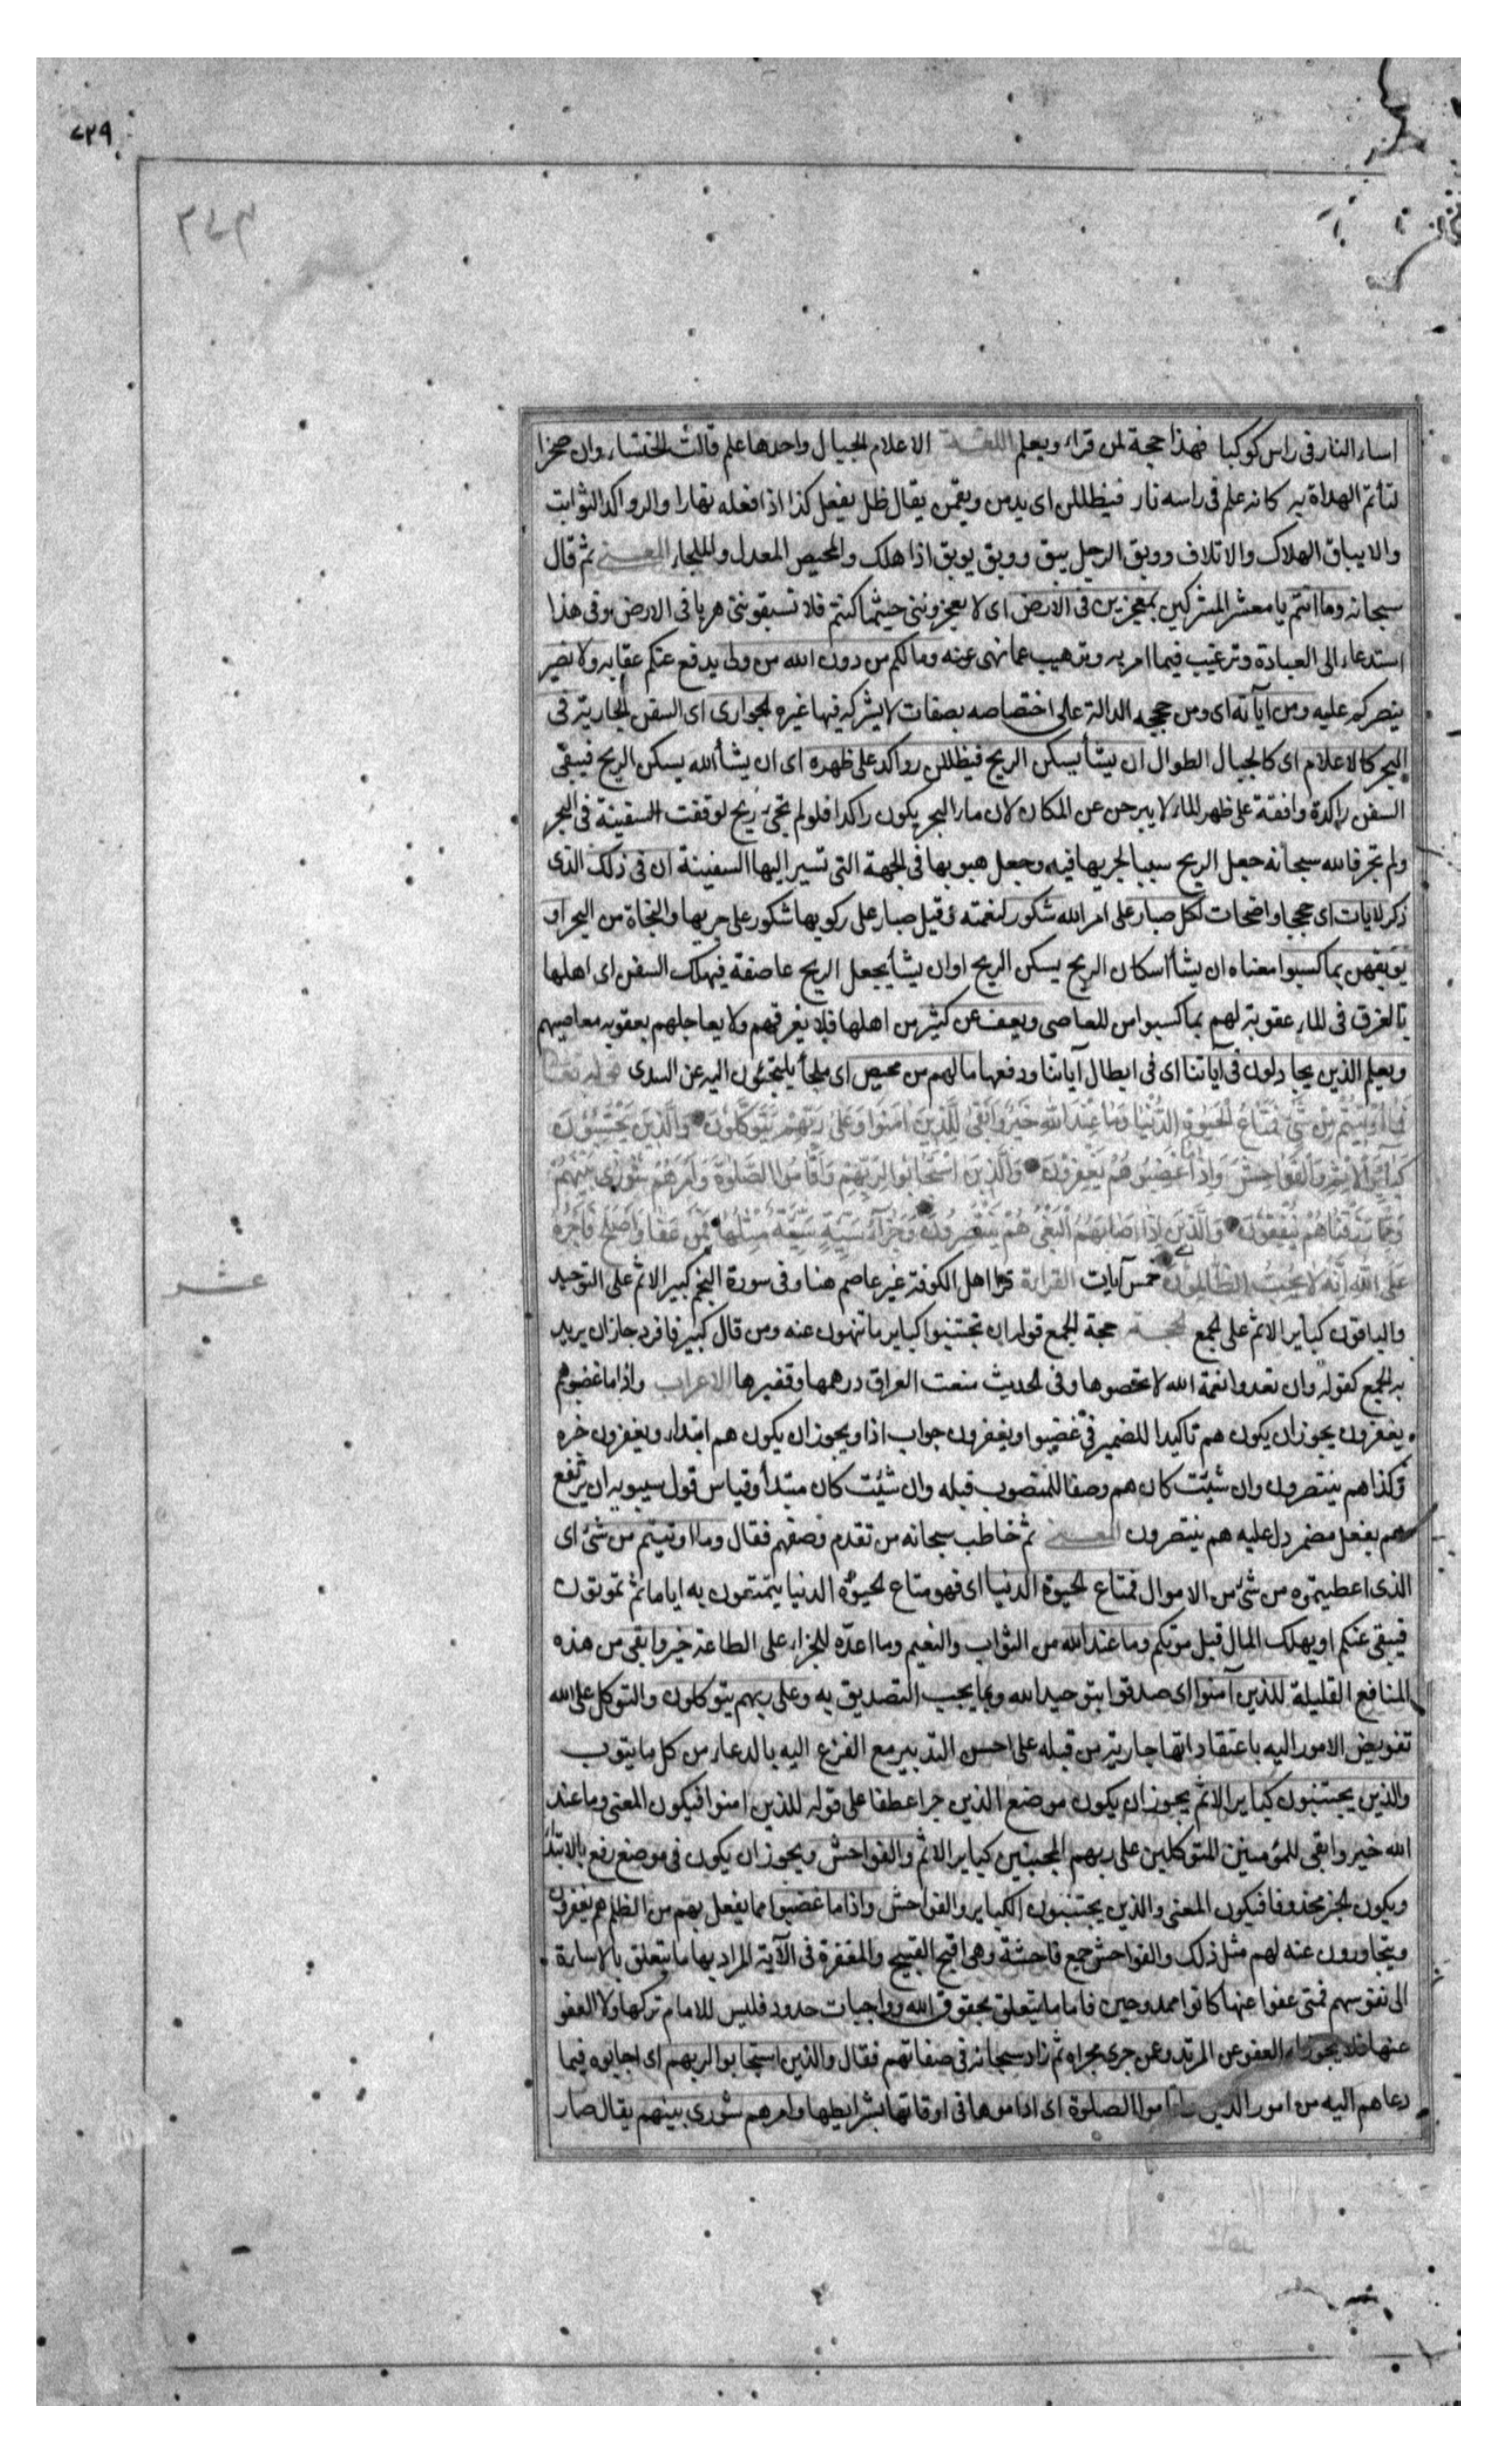 ٤٢٩
٣٧٣
اساء النار فى راس كوكبا فهذا حجة لمن قراء ويعلم اللغة الاعلام الجبال واحدها علم قالت الخنساء وان صخرا
لتأتم الهداة به كانه علم فى راسه نار فيظللن اى يدمن ويقمن يقال ظل يفعل كذا اذا فعله نهارا والرواكد الثوابت
والايباق الهلاك والاتلاف ووبق الرجل يبق ووبق يوبق اذا هلك والمحيص المعدل والملجاء المعنى ثم قال
سبحانه وما انتم يا معشر المشركين بمعجزين فى الارض اى لا يعجزوننى حيثما كنتم فلا تسبقوننى هربا فى الارض وفى هذا
استدعاء الى العبادة وترغيب فيما امر به وترهيب عما نهى عنه وما لكم من دون الله من ولى يدفع عنكم عقابه ولا نصير
ينصركم عليه ومن آياته اى ومن حججه الدالة على اختصاصه بصفات لا يشركه فيها غيره الجوارى اى السفن الجارية فى
البحر كالاعلام اى كالجبال الطوال ان يشأ يسكن الريح فيظللن رواكد على ظهره اى ان يشأ الله يسكن الريح فيبقى
السفن راكدة واقفة على ظهر الماء لا يبرحن عن المكان لان ماء البحر يكون راكدا فلو لم تجئ ريح لوقفت السفينة فى البحر
ولم تجر فالله سبحانه جعل الريح سببا لجريها فيه وجعل هبوبها فى الجهة التى تسير اليها السفينة ان فى ذلك الذى
ذكر لايات اى حججا واضحات لكل صبار على امر الله شكور لنعمته وقيل صبار على ركوبها شكور على جريها والنجاة من البحر او
يوبقهن بما كسبوا معناه ان يشأ اسكان الريح يسكن الريح او ان يشأ يجعل الريح عاصفة فيهلك السفن اى اهلها
بالغرق فى الماء عقوبة لهم بما كسبوا من المعاصى ويعف عن كثير من اهلها فلا يغرقهم ولا يعاجلهم بعقوبة معاصيهم
ويعلم الذين يجادلون فى آياتنا اى فى ابطال آياتنا ودفعها ما لهم من محيص اى ملجأ يلتجئون اليه عن السدى قوله تعالى
فَمَا أُوتِيتُمْ مِنْ شَىْءٍ فَمَتَاعُ الْحَيٰوةِ الدُّنْيَا وَمَا عِنْدَ اللّٰهِ خَيْرٌ وَأَبْقَىٰ لِلَّذِينَ اٰمَنُوا وَعَلَىٰ رَبِّهِمْ يَتَوَكَّلُونَ وَالَّذِينَ يَجْتَنِبُونَ
كَبَائِرَ الْإِثْمِ وَالْفَوَاحِشَ وَإِذَا مَا غَضِبُوا هُمْ يَغْفِرُونَ وَالَّذِينَ اسْتَجَابُوا لِرَبِّهِمْ وَأَقَامُوا الصَّلٰوةَ وَأَمْرُهُمْ شُورَىٰ بَيْنَهُمْ
وَمِمَّا رَزَقْنَاهُمْ يُنْفِقُونَ وَالَّذِينَ إِذَا أَصَابَهُمُ الْبَغْىُ هُمْ يَنْتَصِرُونَ وَجَزَاءُ سَيِّئَةٍ سَيِّئَةٌ مِثْلُهَا فَمَنْ عَفَا وَأَصْلَحَ فَأَجْرُهُ
عَلَى اللّٰهِ إِنَّهُ لَا يُحِبُّ الظَّالِمِينَ خمس آيات القراءة قرا اهل الكوفة غير عاصم هنا وفى سورة النجم كبير الاثم على التوحيد
عشر
والباقون كباير الاثم على الجمع الحجة حجة الجمع قوله ان تجتنبوا كباير ما تنهون عنه ومن قال كبير فافرد جاز ان يريد
به الجمع كقوله وان تعدوا نعمة الله لا تحصوها وفى الحديث منعت العراق درهمها وقفيزها الاعراب واذا ما غضبوا هم
يغفرون يجوز ان يكون هم تاكيدا للضمير فى غضبوا ويغفرون جواب اذا ويجوز ان يكون هم ابتداء ويغفرون خبره
وكذا هم ينتصرون وان شئت كان هم وصفا للمنصوب قبله وان شئت كان مبتدأ وقياس قول سيبويه ان يرتفع
هم بفعل مضمر دل عليه هم ينتصرون المعنى ثم خاطب سبحانه من تقدم وصفهم فقال وما اوتيتم من شئ اى
الذى اعطيتموه من شئ من الاموال فمتاع الحيوة الدنيا اى فهو متاع الحيوة الدنيا يتمتعون به اياما ثم تموتون
فيبقى عنكم او يهلك المال قبل موتكم وما عند الله من الثواب والنعيم وما اعده للجزاء على الطاعة خير وابقى من هذه
المنافع القليلة للذين آمنوا اى صدقوا بتوحيد الله وبما يجب التصديق به وعلى ربهم يتوكلون والتوكل على الله
تفويض الامور اليه باعتقاد انها جارية من قبله على احسن التدبير مع الفزع اليه بالدعاء من كل ما ينوب
والذين يجتنبون كباير الاثم يجوز ان يكون موضع الذين جرا عطفا على قوله للذين امنوا فيكون المعنى وما عند
الله خير وابقى للمؤمنين المتوكلين على ربهم المجتنبين كباير الاثم والفواحش ويجوز ان يكون فى موضع رفع بالابتداء
ويكون الخبر محذوفا فيكون المعنى والذين يجتنبون الكباير والفواحش واذا ما غضبوا مما يفعل بهم من الظلم هم يغفرون
ويتجاوزون عنه لهم مثل ذلك والفواحش جمع فاحشة وهى اقبح القبيح والمغفرة فى الآية المراد بها ما يتعلق بالاساءة
الى نفوسهم فمتى عفوا عنها كانوا ممدوحين فاما ما يتعلق بحقوق الله وواجبات حدود فليس للامام تركها ولا العفو
عنها فلا يجوز العفو عن المرتد وعن جرى مجراه ثم زاد سبحانه فى صفاتهم فقال والذين استجابوا لربهم اى اجابوه فيما
دعاهم اليه من امور الدين واقاموا الصلوة اى اداموها فى اوقاتها بشرايطها وامرهم شورى بينهم يقال صار